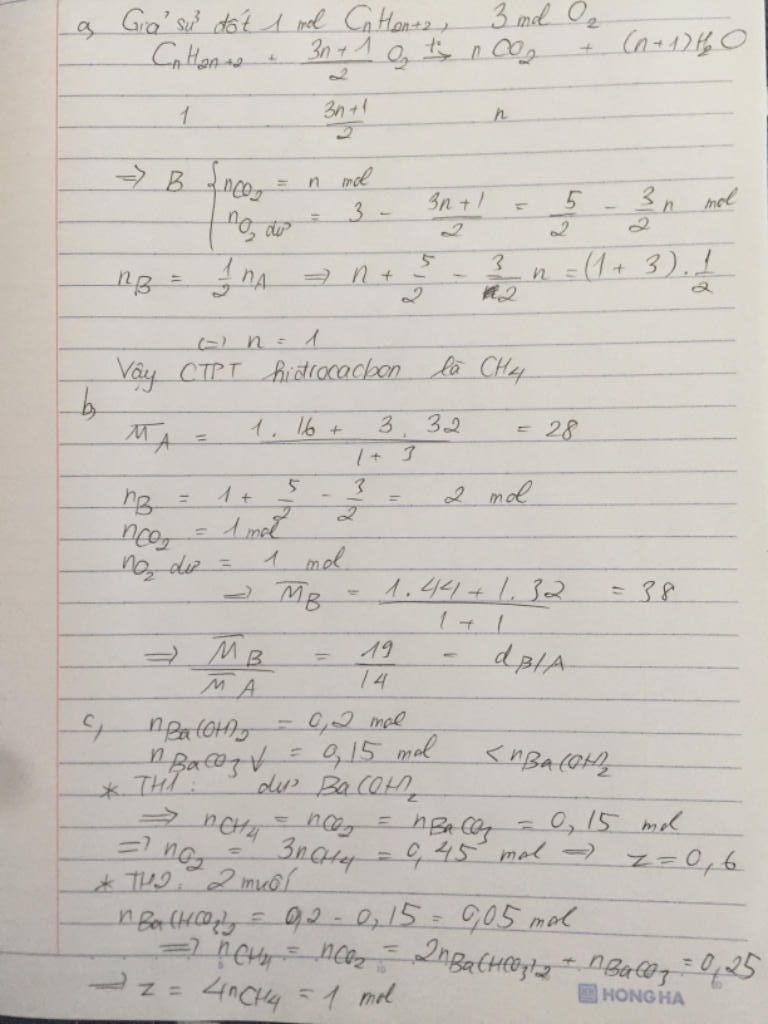 a, Giả sử đốt 1 mol CnH2n+2, 3 mol O2
CnH2n+2 + (3n+1)/2 O2 t°→ nCO2 + (n+1)H2O
1 (3n+1)/2 n
=> B { nCO2 = n mol
nO2 dư = 3 - (3n+1)/2 = 5/2 - 3/2 n mol
nB = 1/2 nA => n + 5/2 - 3/2 n = (1 + 3) . 1/2
(=) n = 1
Vậy CTPT hiđrocacbon là CH4
b,
M̅A = (1.16 + 3.32)/(1 + 3) = 28
nB = 1 + 5/2 - 3/2 = 2 mol
nCO2 = 1 mol
nO2 dư = 1 mol
=> M̅B = (1.44 + 1.32)/(1 + 1) = 38
=> M̅B/M̅A = 19/14 = dB/A
c, nBa(OH)2 = 0,2 mol
nBaCO3↓ = 0,15 mol < nBa(OH)2
* TH1: dư Ba(OH)2
=> nCH4 = nCO2 = nBaCO3 = 0,15 mol
=> nO2 = 3nCH4 = 0,45 mol => z = 0,6
* TH2: 2 muối
nBa(HCO3)2 = 0,2 - 0,15 = 0,05 mol
=> nCH4 = nCO2 = 2nBa(HCO3)2 + nBaCO3 = 0,25
=> z = 4nCH4 = 1 mol
HONG HA